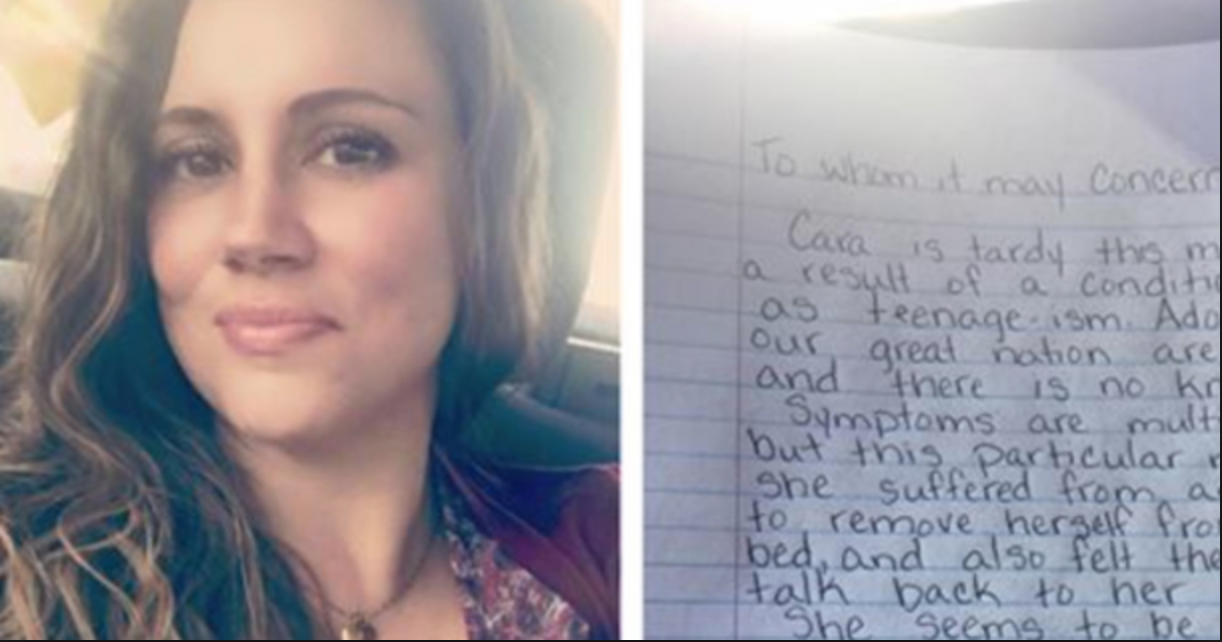 To whom it may Concern
Cara is tardy this
a result of a
as teenage-ism.
our great nation are
and there is no
Symptoms are
but this particular
She suffered from
to remove herself
bed, and also felt
talk back to her
She seems to be